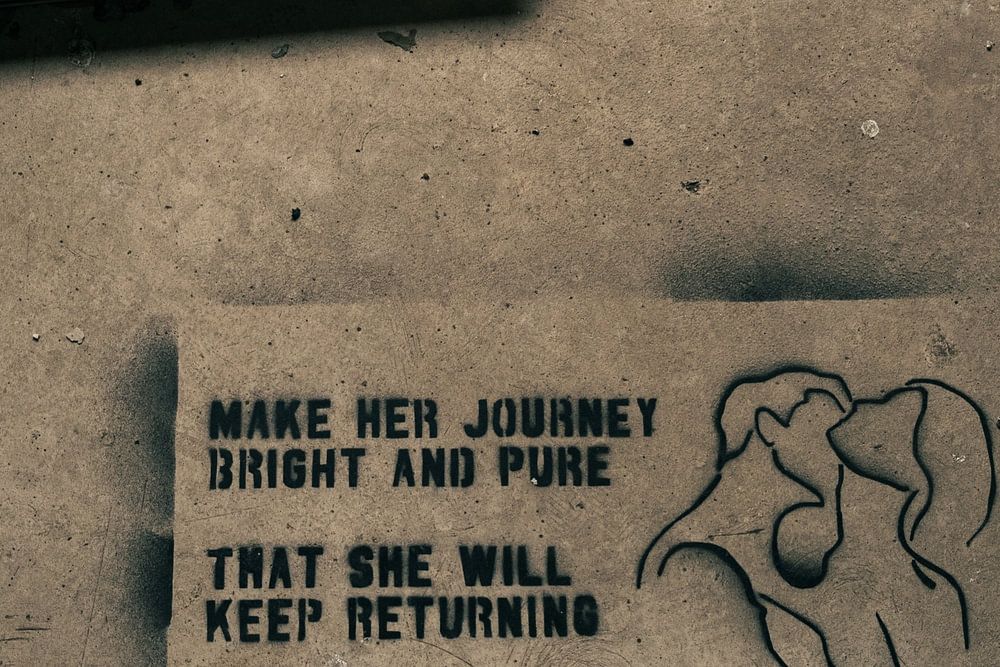 MAKE HER JOURNEY
BRIGHT AND PURE
THAT SHE WILL
KEEP RETURNING